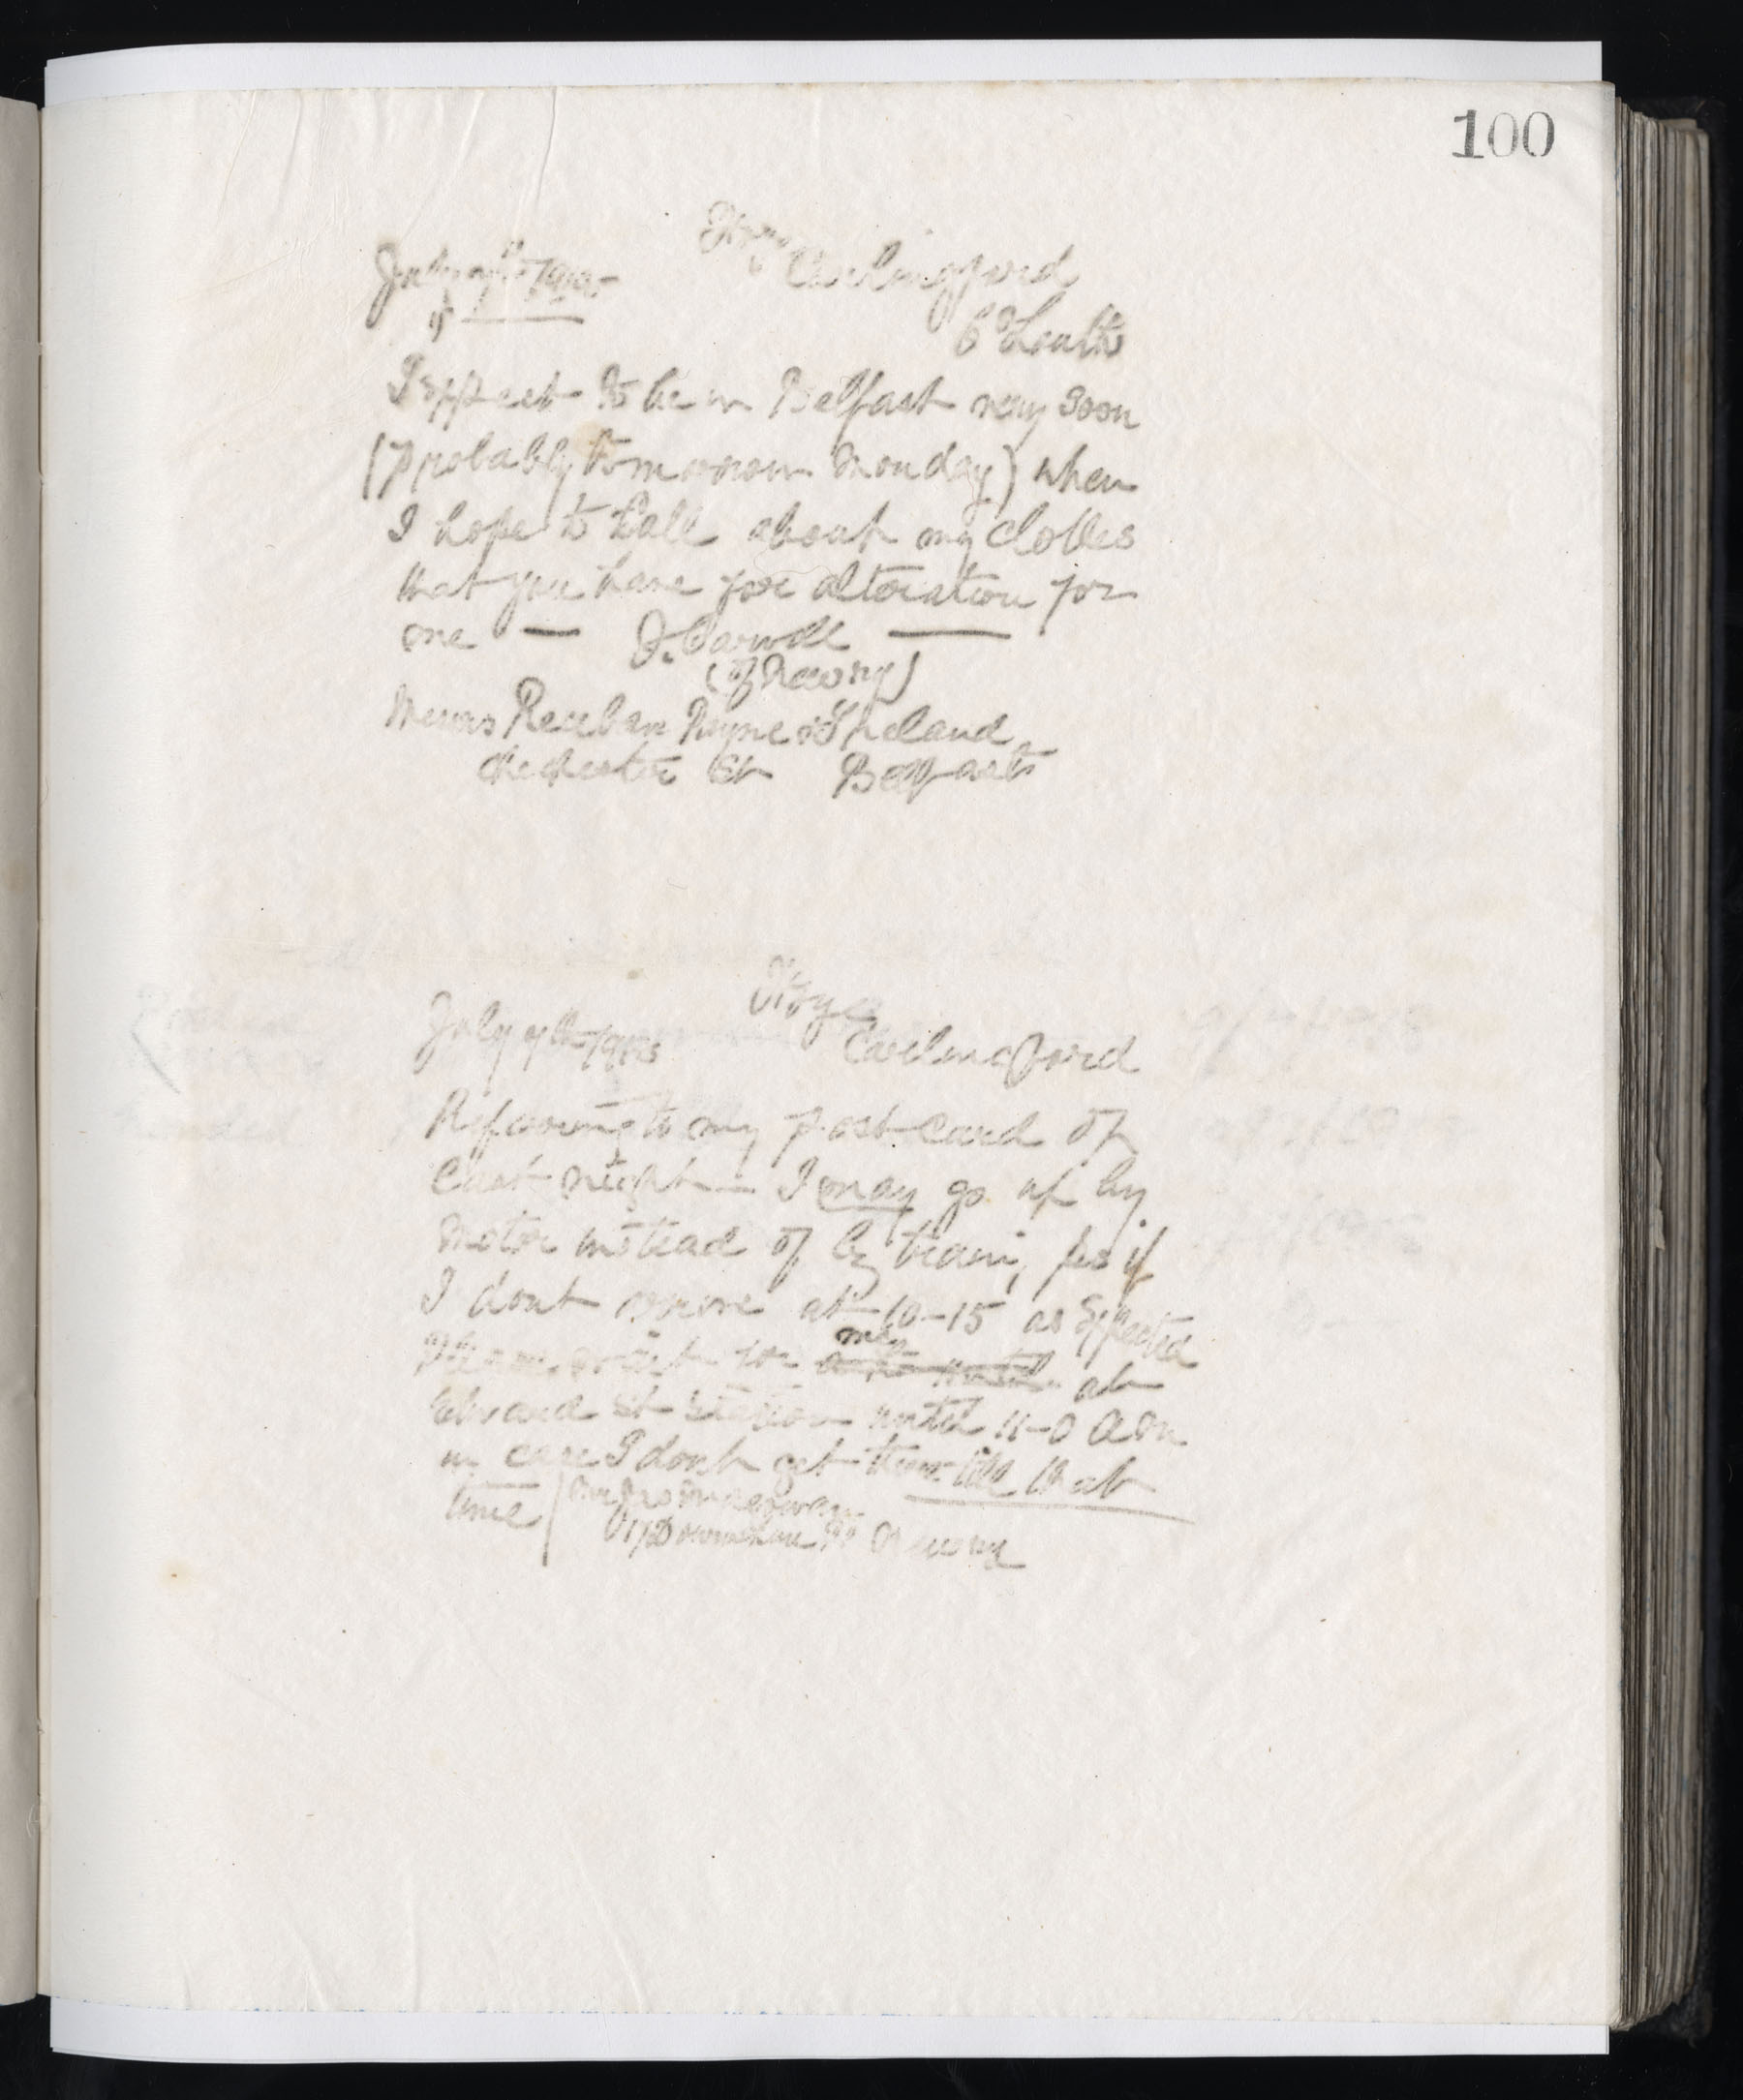 100
Carlingford
July 7th 1912
Co Louth
I expect to be in Belfast very soon
(probably tomorrow Monday) when
I hope to call about my clothes
that you have for alteration for
me — J. Carvill —
(of Newry)
Messrs Reuben Payne & Ireland
Chichester St Belfast
July 7th
Carlingford
Referring to my post card of
last night — I may go up by
motor instead of by train, so if
I dont arrive at 10-15 as expected
Please wait for me at
Edward St Station until 11-0 am
in case I dont get there till that
time
17 Downshire Rd Newry